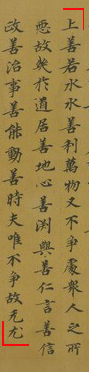 上善若水水善利萬物又不爭處衆人之所
惡故幾於道居善地心善渊與善仁言善信
政善治事善能動善時夫唯不爭故无尤